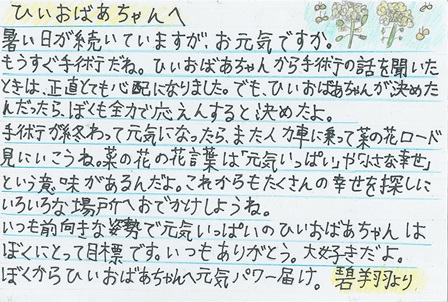 ひぃおばあちゃんへ
暑い日が続いていますが、お元気ですか。
もうすぐ手術だね。ひぃおばあちゃんから手術の話を聞いた
ときは、正直とても心配になりました。でも、ひぃおばあちゃんが決めた
んだったら、ぼくも全力で応えんすると決めたよ。
手術が終わって元気になったら、また人力車に乗って菜の花ロード
見にいこうね。菜の花の花言葉は「元気いっぱい」や「小さな幸せ」
という意味があるんだよ。これからもたくさんの幸せを探しに
いろいろな場所へおでかけしようね。
いつも前向きな姿勢で元気いっぱいのひぃおばあちゃんは
ぼくにとって目標です。いつもありがとう。大好きだよ。
ぼくからひぃおばあちゃんへ元気パワー届け。碧翔より